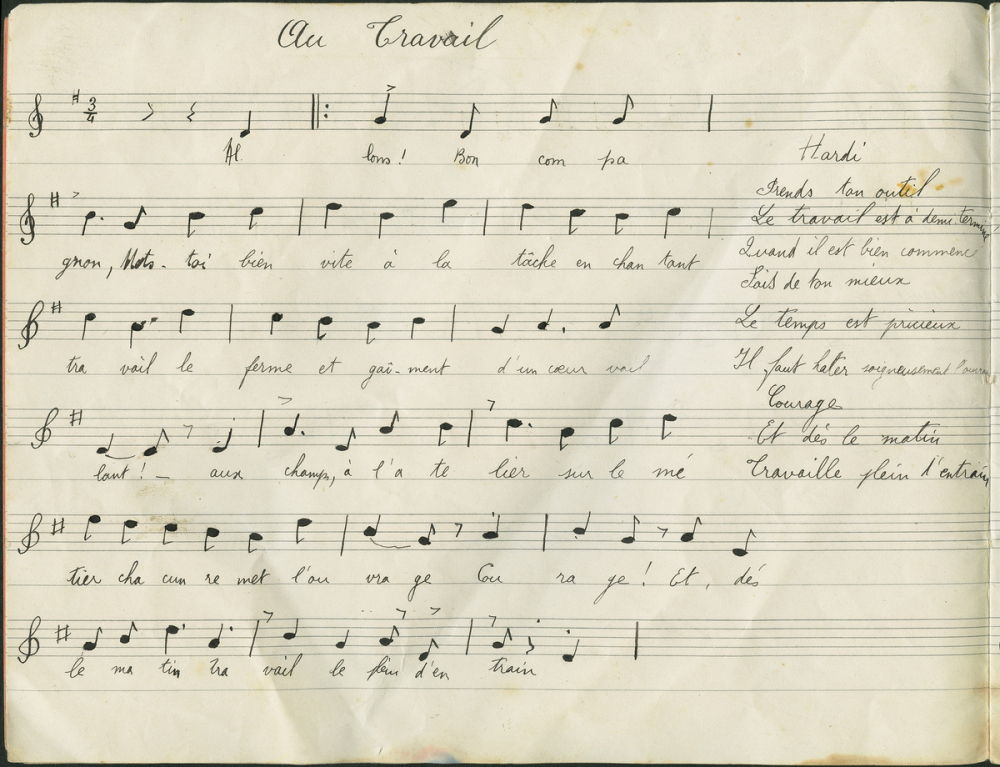 Au Travail
3/4
Al lons! Bon com pa
gnon, Mets-toi bien vite à la tâche en chan tant
tra vail le ferme et gaî-ment d'un cœur vail
lant! – aux champs, à l'a te lier sur le mé
tier cha cun re met l'ou vra ge Cou ra ge! Et, dés
le ma tin tra vail le plein d'en train
Hardi
Prends ton outil
Le travail est à demi terminé
Quand il est bien commencé
Fais de ton mieux
Le temps est précieux
Il faut hâter soigneusement
Courage
Et dés le matin
Travaille plein d'entrain